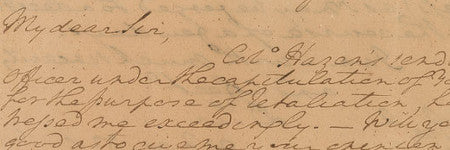 My dear Sir,
Colº Hazen's send
officer under the capitulation of Yo
for the purpose of retaliation, ha
tressed me exceedingly. — Will yo
good as to give me your opinion